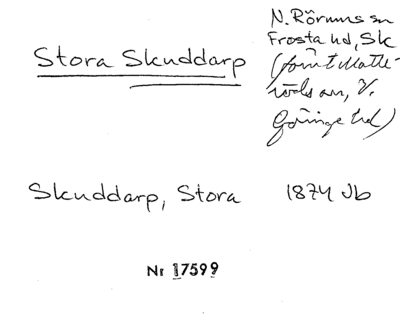 Stora Skuddarp
N. Rörums sn
Frosta hd, Sk
(förut Matte-
röds sn, V.
Göinge hd)
Skuddarp, Stora 1874 Jb
Nr 17599